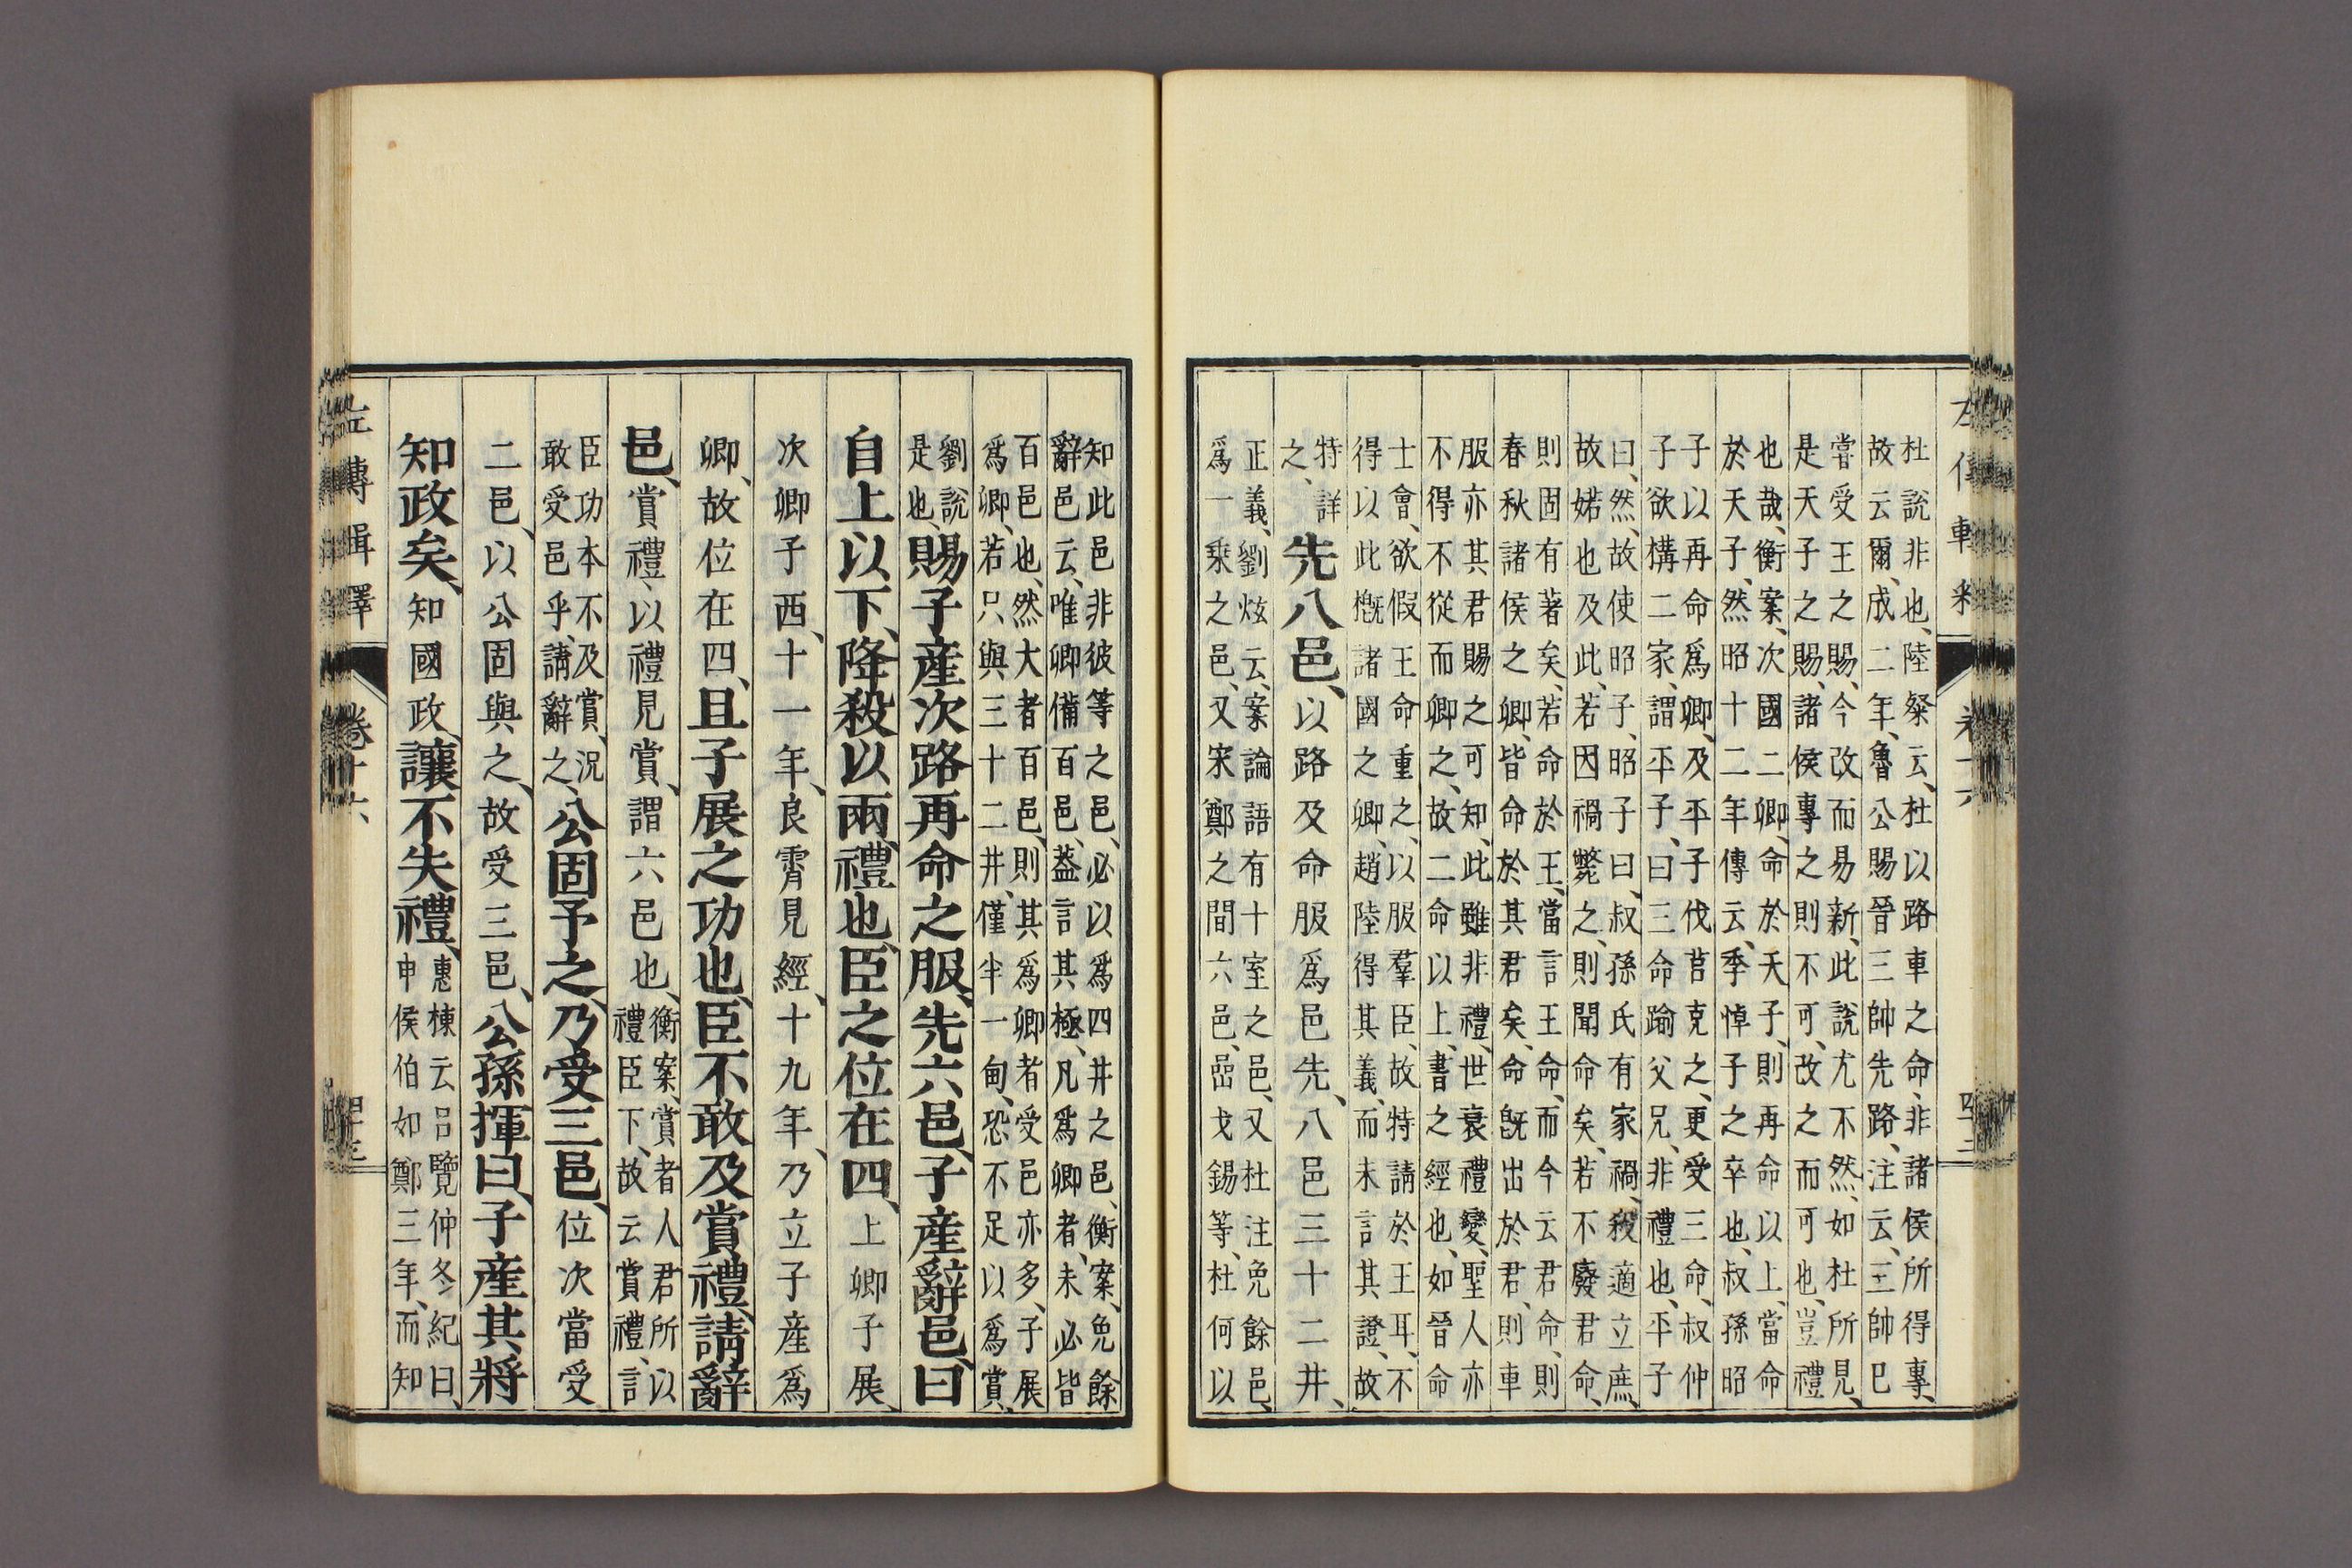 左傳輯釋　卷十六
杜說非也、陸粲云、杜以路車之命、非諸侯所得專、
故云爾、成二年、魯公賜晉三帥先路、注云、三帥巳
嘗受王之賜、今改而易新、此說尤不然、如杜所見、
是天子之賜、諸侯專之則不可、改之而可也、豈禮
也哉、衡案、次國二卿、命於天子、則再命以上、當命
於天子、然昭十二年傳云、季悼子之卒也、叔孫昭
子以再命爲卿、及平子伐莒克之、更受三命、叔仲
子欲構二家、謂平子、曰三命踰父兄、非禮也、平子
曰、然、故使昭子、昭子曰、叔孫氏有家禍、殺適立庶、
故婼也及此、若因禍斃之、則聞命矣、若不廢君命、
則固有著矣、若命於王、當言王命、而今云君命、則
春秋諸侯之卿、皆命於其君矣、命旣出於君、則車
服亦其君賜之可知、此雖非禮、世衰禮變、聖人亦
不得不從而卿之、故二命以上、書之經也、如晉命
士會、欲假王命重之、以服羣臣、故特請於王耳、不
得以此槪諸國之卿、趙陸得其義、而未言其證、故
特詳
之、
先八邑、以路及命服爲邑先、八邑三十二井、
正義、劉炫云、案論語有十室之邑、又杜注免餘邑、
爲一乘之邑、又宋鄭之間六邑、嵒戈錫等、杜何以
知此邑非彼等之邑、必以爲四井之邑、衡案、免餘
辭邑云、唯卿備百邑、葢言其極、凡爲卿者、未必皆
百邑也、然大者百邑、則其爲卿者受邑亦多、子展
爲卿、若只與三十二井、僅半一甸、恐不足以爲賞、
劉說
是也、
賜子産次路再命之服、先六邑、子産辭邑、曰
自上以下、降殺以兩、禮也、臣之位在四、上卿子展、
次卿子西、十一年、良霄見經、十九年、乃立子産爲
卿、故位在四、且子展之功也、臣不敢及賞禮、請辭
邑、賞禮、以禮見賞、謂六邑也、
衡案、賞者人君所以
禮臣下、故云賞禮、言
臣功本不及賞、況
敢受邑乎、請辭之、
公固予之、乃受三邑、位次當受
二邑、以公固與之、故受三邑、公孫揮曰、子産其將
知政矣、知國政、讓不失禮、
惠棟云、呂覽仲冬紀曰、
申侯伯如鄭三年、而知
左傳輯釋　卷十六